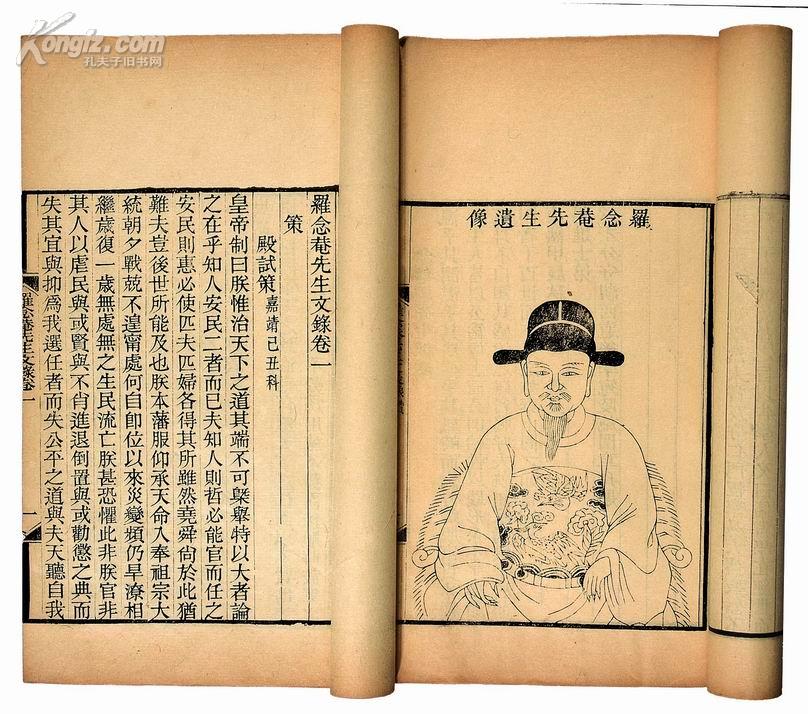 Kongfz.com
孔夫子旧书网
羅念菴先生遺像
羅念菴先生文錄卷一
策
殿試策 嘉靖己丑科
皇帝制曰朕惟治天下之道其端不可槩舉特以大者論
之在乎知人安民二者而已夫知人則哲必能官而任之
安民則惠必使匹夫匹婦各得其所雖然堯舜尙於此猶
難夫豈後世所能及也朕本藩服仰承天命入奉祖宗大
統朝夕戰兢不遑甯處何自卽位以來災變頻仍旱潦相
繼歲復一歲無處無之生民流亡朕甚恐懼此非朕官非
其人以虐民與或賢與不肖進退倒置與或勸懲之典而
失其宜與抑爲我選任者而失公平之道與夫天聽自我
羅念菴先生文錄卷一
一